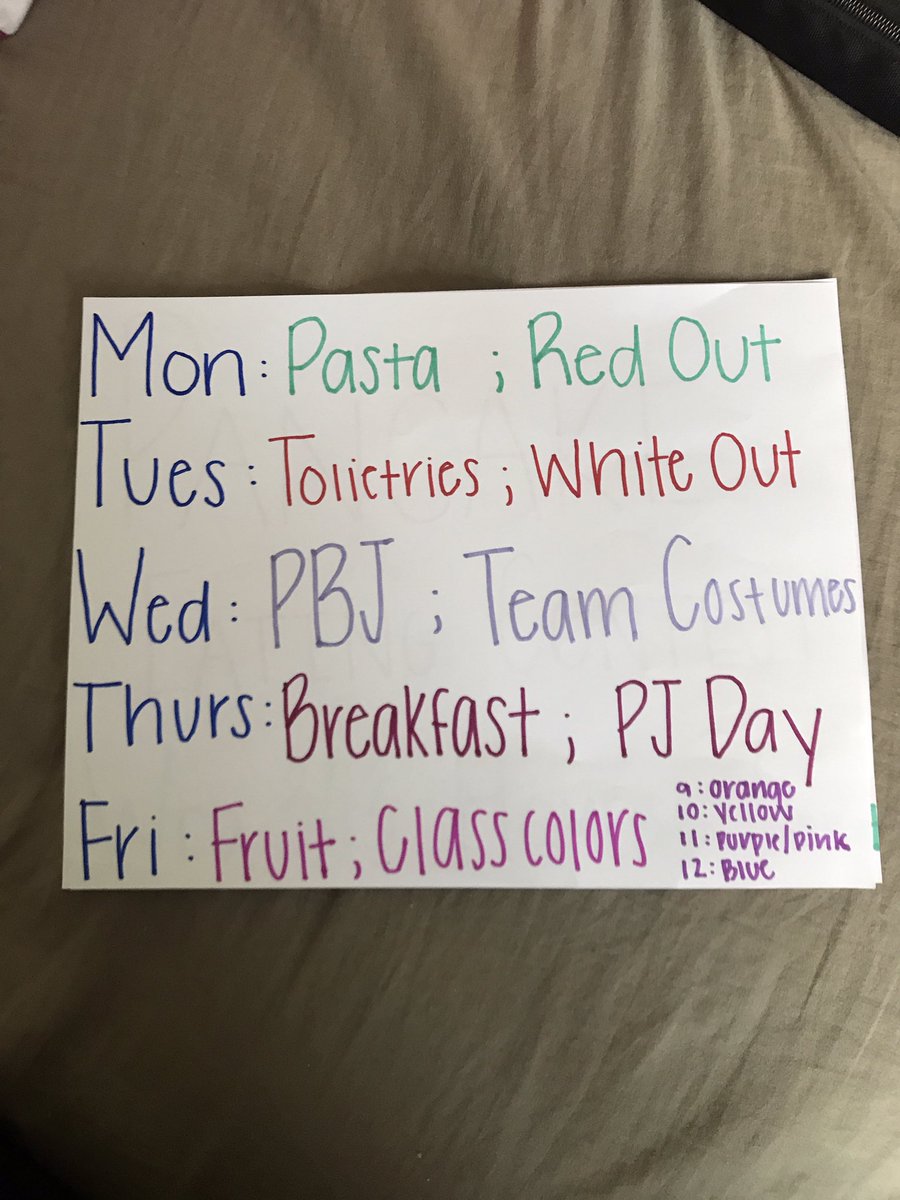 Mon: Pasta ; Red Out
Tues: Tolietries ; White Out
Wed: PBJ ; Team Costumes
Thurs: Breakfast ; PJ Day
Fri: Fruit ; Class colors
9: orange
10: yellow
11: purple/pink
12: Blue